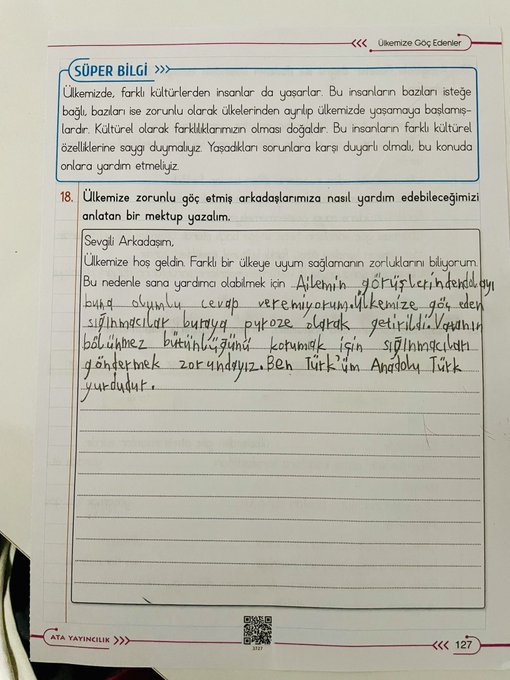 Ülkemize Göç Edenler
SÜPER BİLGİ
Ülkemizde, farklı kültürlerden insanlar da yaşarlar. Bu insanların bazıları isteğe
bağlı, bazıları ise zorunlu olarak ülkelerinden ayrılıp ülkemizde yaşamaya başlamış-
lardır. Kültürel olarak farklılıklarımızın olması doğaldır. Bu insanların farklı kültürel
özelliklerine saygı duymalıyız. Yaşadıkları sorunlara karşı duyarlı olmalı, bu konuda
onlara yardım etmeliyiz.
18. Ülkemize zorunlu göç etmiş arkadaşlarımıza nasıl yardım edebileceğimizi
anlatan bir mektup yazalım.
Sevgili Arkadaşım,
Ülkemize hoş geldin. Farklı bir ülkeye uyum sağlamanın zorluklarını biliyorum.
Bu nedenle sana yardımcı olabilmek için Ailemin görüşlerindendolayı
buna olumlu cevap veremiyorum.Ülkemize göç eden
sığınmacılar buraya puroze olarak getirildi.Vatanın
bölünmez bütünlüğünü korumak için sığınmacıları
göndermek zorundayız.Ben Türk'üm Anadolu Türk
yurdudur.
ATA YAYINCILIK
3727
127